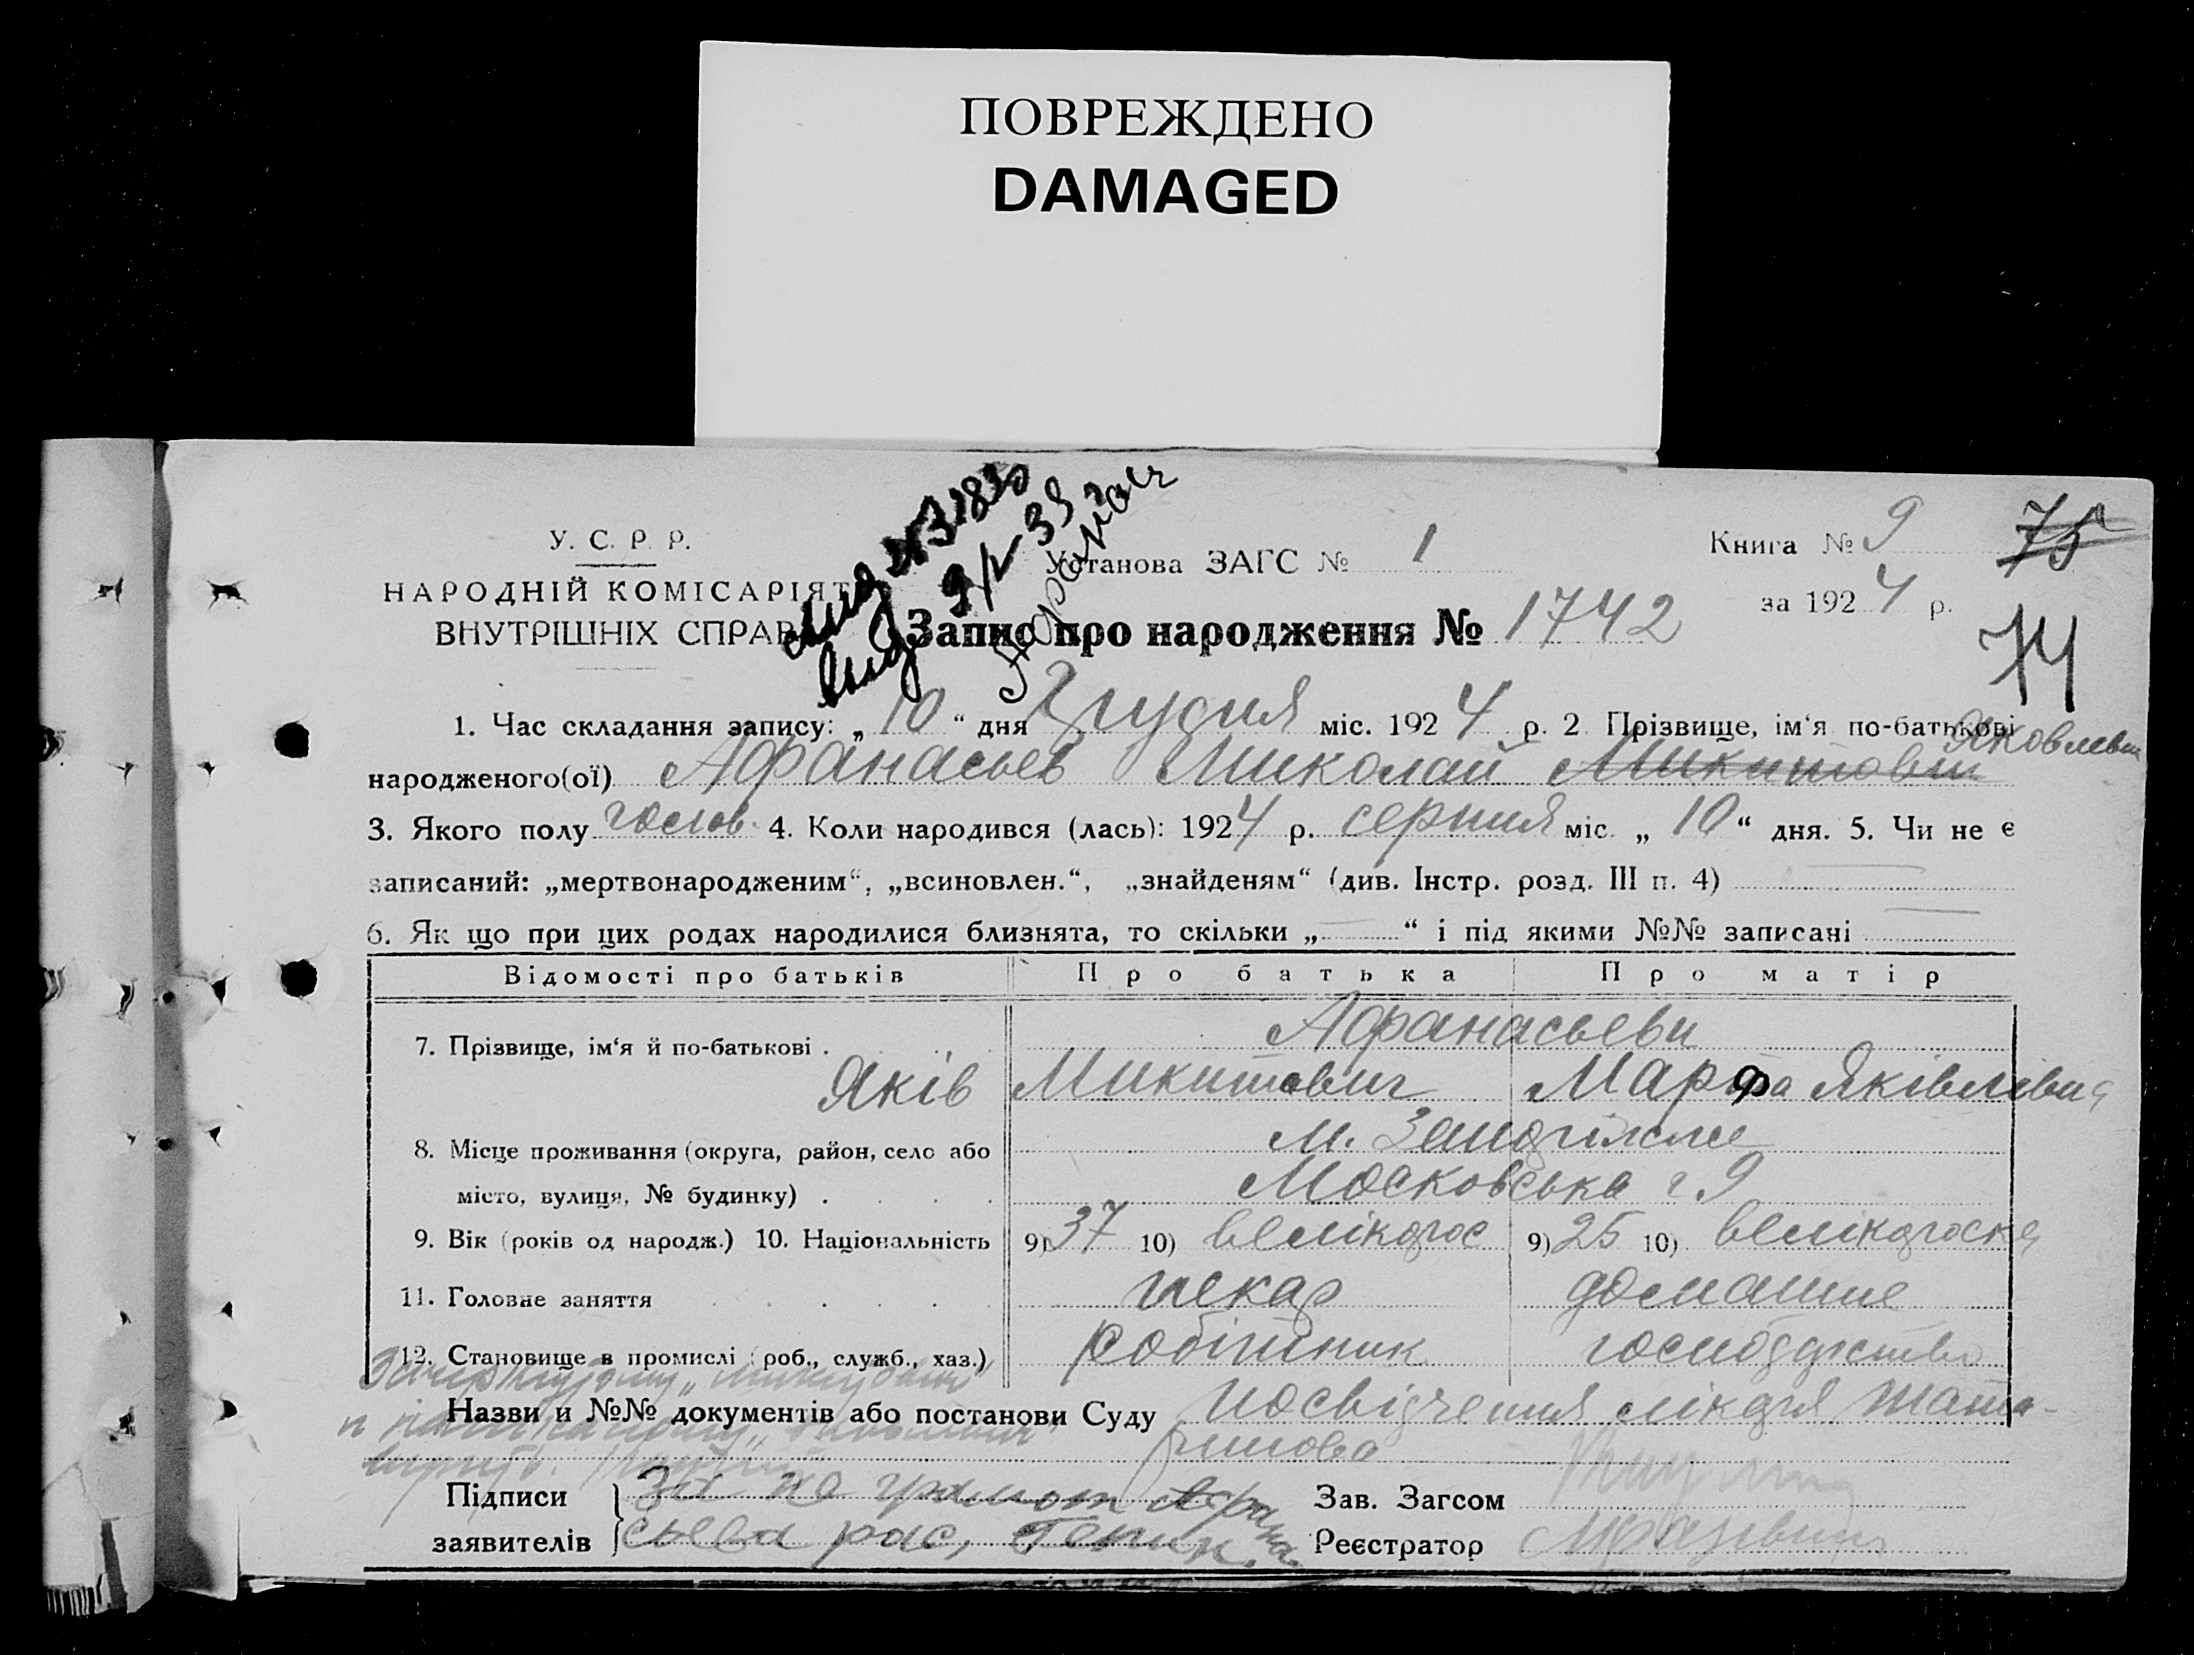 ПОВРЕЖДЕНО
DAMAGED
У. С. Р. Р.
НАРОДНІЙ КОМІСАРІЯТ
ВНУТРІШНІХ СПРАВ
9/V 39
Установа ЗАГС № 1
Книга № 9
75
за 1924 р.
74
Запис про народження № 1742
1. Час складання запису: „10“ дня Грудня міс. 1924 р. 2 Прізвище, ім‘я по-батькові
Яковлевич
народженого(ої) Афанасьев Миколай Микитович
3. Якого полу 4. Коли народився (лась): 1924 р. серпня міс. „10“ дня. 5. Чи не є
записаний: „мертвонародженим“, „всиновлен.“, „знайденям“ (див. Інстр. розд. III п. 4)
6. Як що при цих родах народилися близнята, то скільки „ “ і під якими №№ записані
Відомості про батьків Про батька Про матір
7. Прізвище, ім‘я й по-батькові . Афанасьеви
Яків Микитович Марфа Яківлівна
8. Місце проживання (округа, район, село або м.
місто, вулиця, № будинку) . Московська 9
9. Вік (років од народж.) 10. Національність 9) 37 10) велікорос 9) 25 10) велікороска
11. Головне заняття пекар домашнє
12. Становище в промислі (роб., служб., хаз.) робітник господарство
Назви и №№ документів або постанови Суду посвідчення лікаря
Підписи
заявителів
За не грамот Афана
сьева рас,
Зав. Загсом
Реєстратор